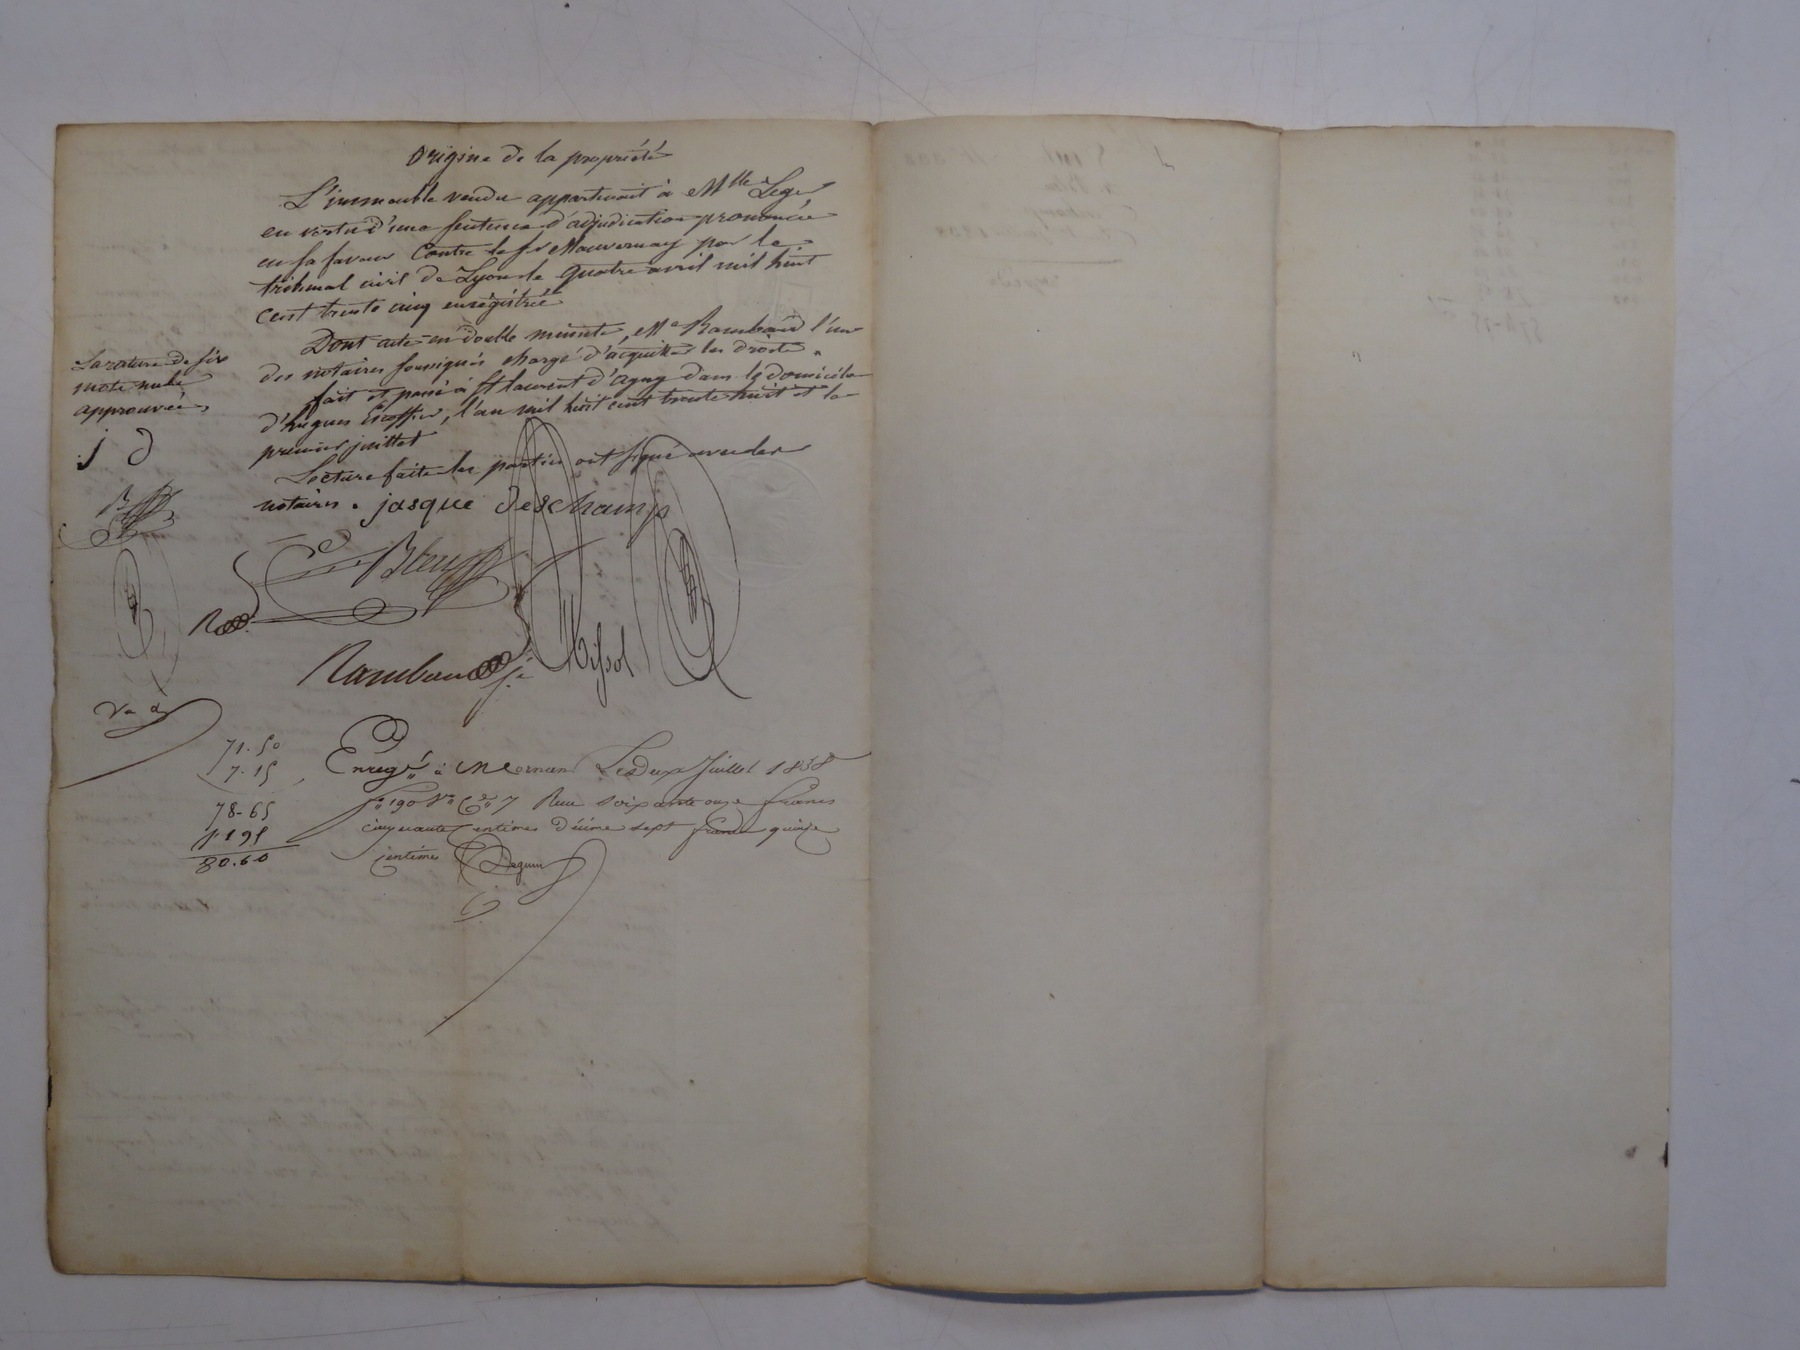 Origine de la propriété
L'immeuble vendu appartenait à Mlle Leger
en vertu d'une sentence d'adjudication prononcée
en sa faveur contre le sr Mauvernay par le
tribunal civil de Lyon le quatre avril mil huit
cent trente cinq enregistrée
Dont acte en double minute, Me Rambaud l'un
des notaires soussignés chargé d'acquitter les droits.
fait et passé à St laurent d'agny dans le domicile
d'hugues Escoffier, l'an mil huit cent trente huit et le
premier juillet
Lecture faite les parties ont signé avec les
notaires. jasque deschamp
La rature de six
mots nuls
approuvée,
j d
Rambaud
71.50
7.15
78-65
1.95
80.60
Enregé à Mornant Le deux Juillet 1838
fo 190 Vo Ce 7 Reçu soixante onze francs
cinquante centimes dixime sept francs quinze
centimes